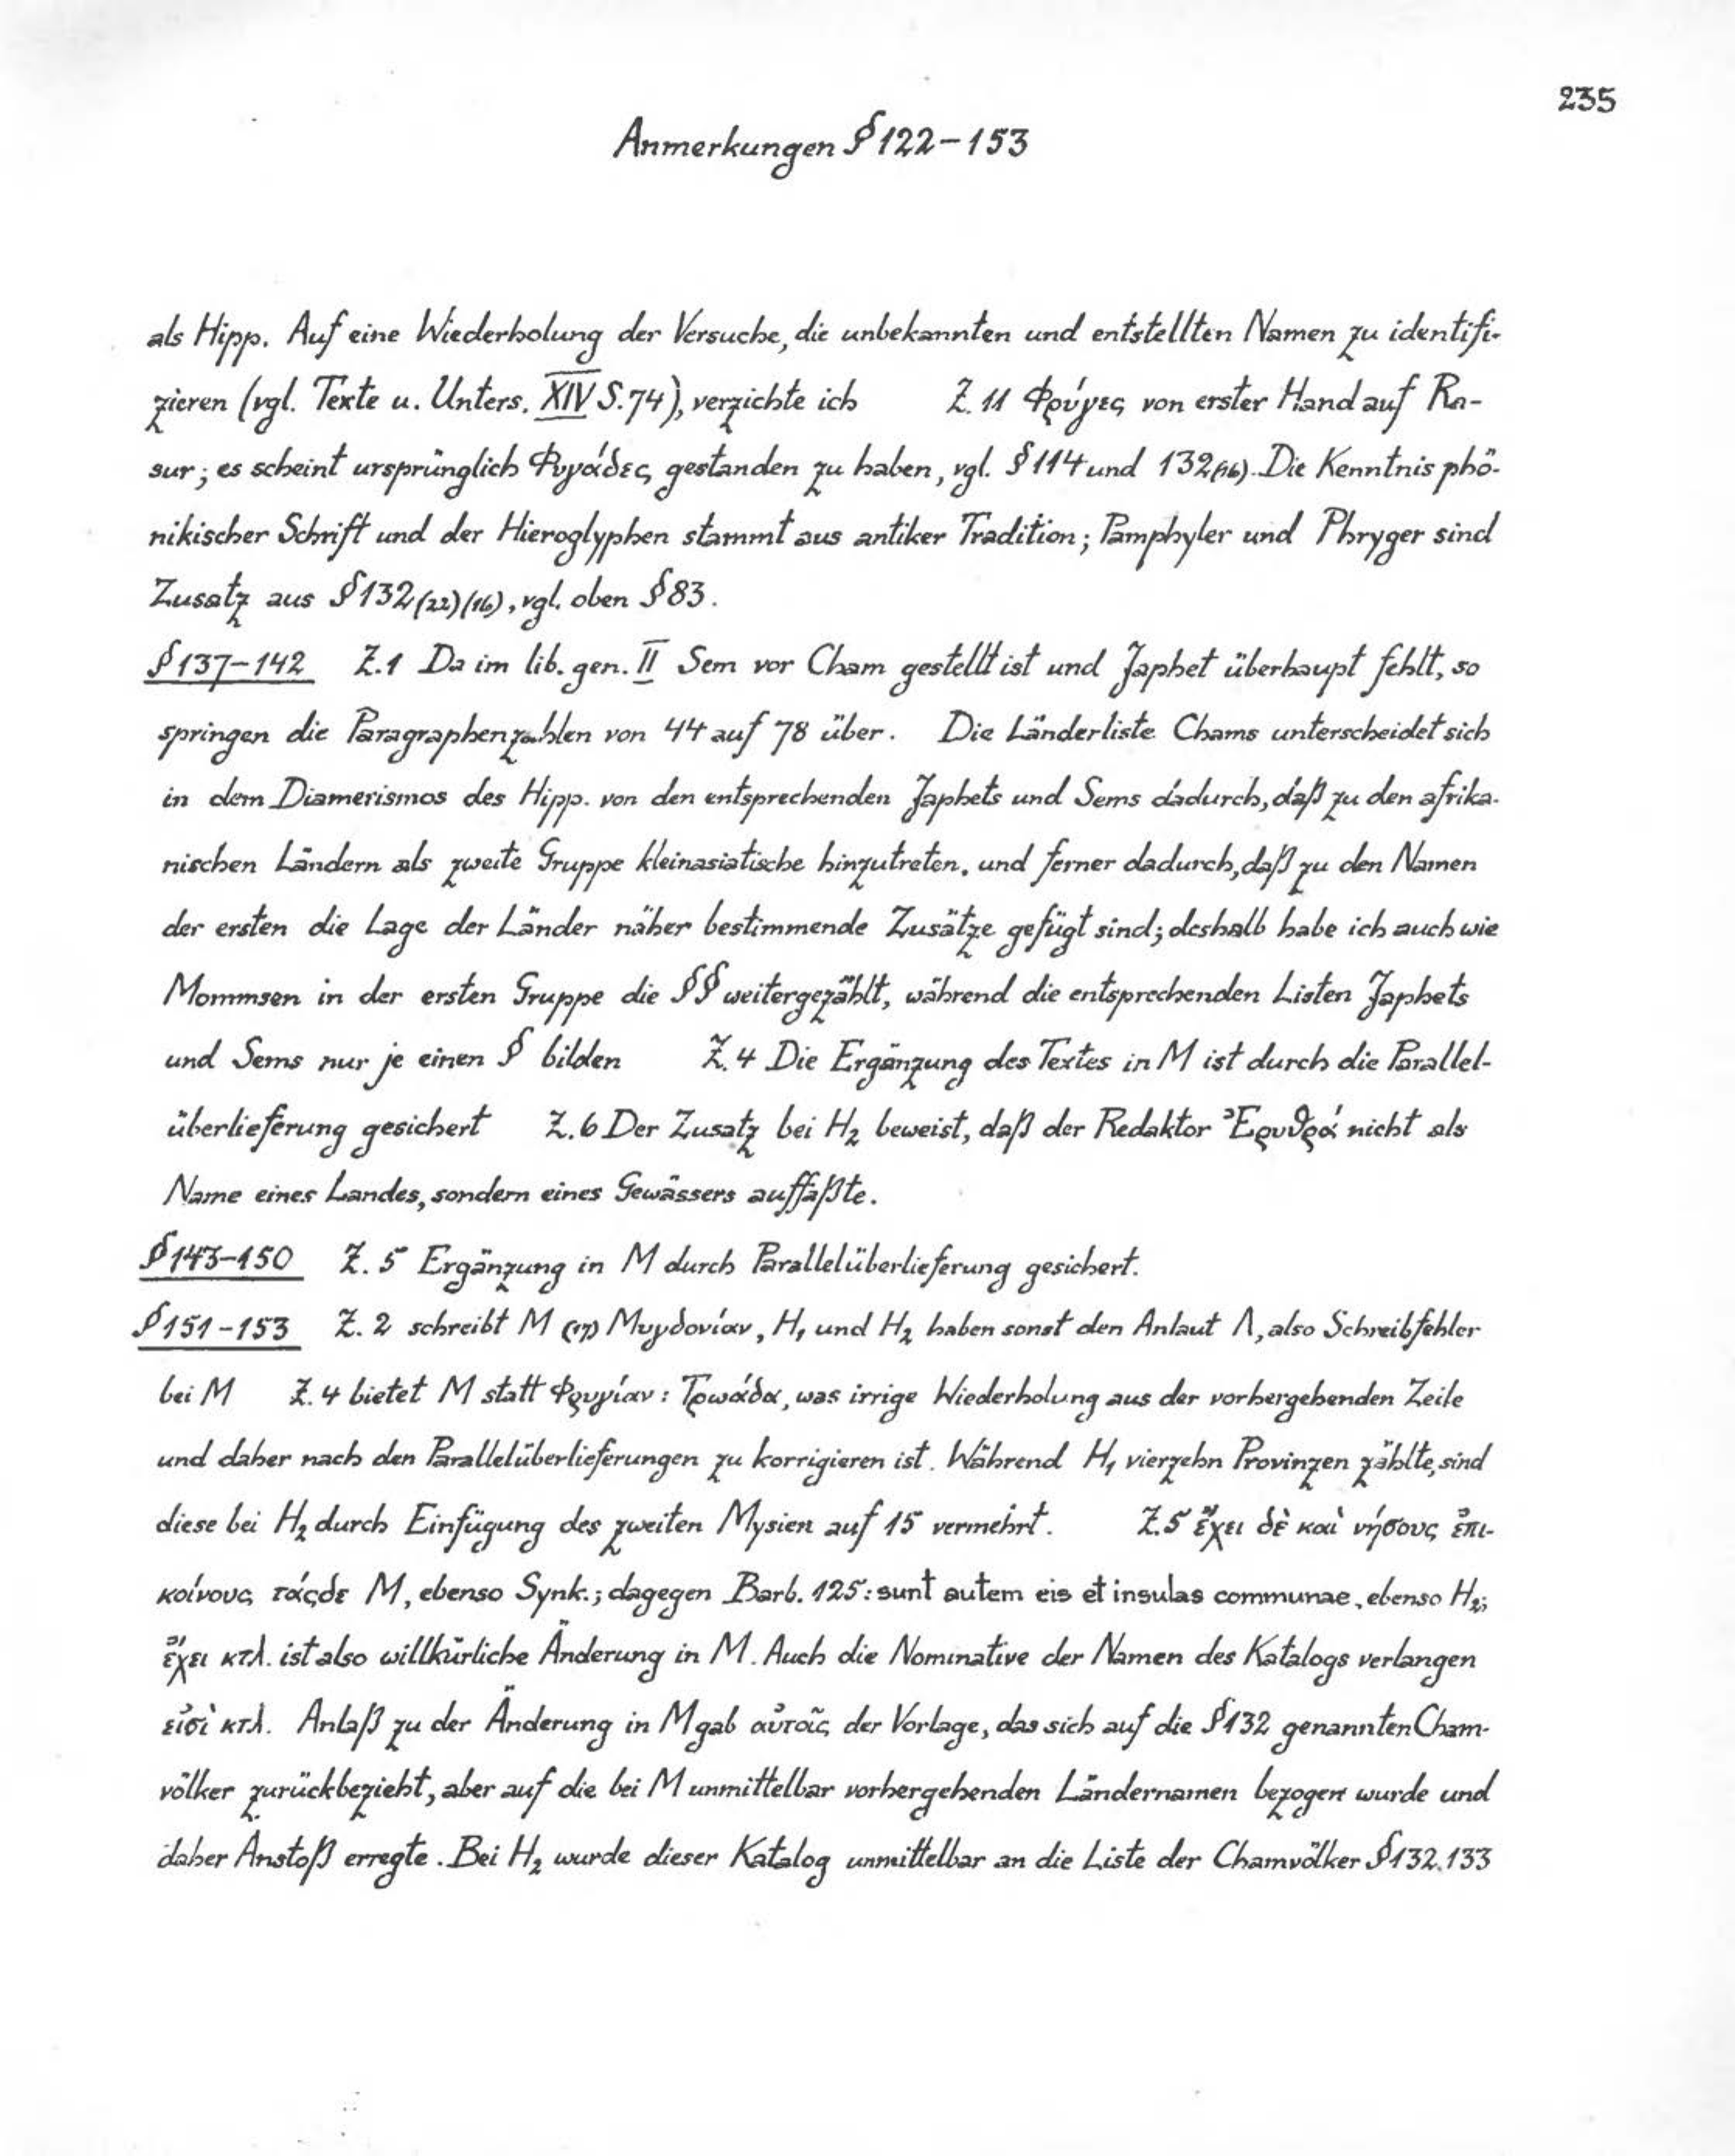 235
Anmerkungen § 122–153
als Hipp. Auf eine Wiederholung der Versuche, die unbekannten und entstellten Namen zu identifi-
zieren (vgl. Texte u. Unters. XIV S. 74), verzichte ich Z. 11 Φρύγες von erster Hand auf Ra-
sur; es scheint ursprünglich Φυγάδες gestanden zu haben, vgl. § 114 und 132 (16). Die Kenntnis phö-
nikischer Schrift und der Hieroglyphen stammt aus antiker Tradition; Pamphyler und Phryger sind
Zusatz aus § 132 (22) (16), vgl. oben § 83.
§ 137–142 Z. 1 Da im lib. gen. II Sem vor Cham gestellt ist und Japhet überhaupt fehlt, so
springen die Paragraphenzahlen von 44 auf 78 über. Die Länderliste Chams unterscheidet sich
in dem Diamerismos des Hipp. von den entsprechenden Japhets und Sems dadurch, daß zu den afrika-
nischen Ländern als zweite Gruppe kleinasiatische hinzutreten, und ferner dadurch, daß zu den Namen
der ersten die Lage der Länder näher bestimmende Zusätze gefügt sind; deshalb habe ich auch wie
Mommsen in der ersten Gruppe die §§ weitergezählt, während die entsprechenden Listen Japhets
und Sems nur je einen § bilden Z. 4 Die Ergänzung des Textes in M ist durch die Parallel-
überlieferung gesichert Z. 6 Der Zusatz bei H₂ beweist, daß der Redaktor Ἐρυθρά nicht als
Name eines Landes, sondern eines Gewässers auffaßte.
§ 143–150 Z. 5 Ergänzung in M durch Parallelüberlieferung gesichert.
§ 151–153 Z. 2 schreibt M (17) Μυγδονίαν, H₁ und H₂ haben sonst den Anlaut Λ, also Schreibfehler
bei M Z. 4 bietet M statt Φρυγίαν: Τρωάδα, was irrige Wiederholung aus der vorhergehenden Zeile
und daher nach den Parallelüberlieferungen zu korrigieren ist. Während H₁ vierzehn Provinzen zählte, sind
diese bei H₂ durch Einfügung des zweiten Mysien auf 15 vermehrt. Z. 5 ἔχει δὲ καὶ νήσους ἐπι-
κοίνους τάςδε M, ebenso Synk.; dagegen Barb. 125: sunt autem eis et insulas communae, ebenso H₂;
ἔχει κτλ. ist also willkürliche Änderung in M. Auch die Nominative der Namen des Katalogs verlangen
εἰσὶ κτλ. Anlaß zu der Änderung in M gab αὐτοῖς der Vorlage, das sich auf die § 132 genannten Cham-
völker zurückbezieht, aber auf die bei M unmittelbar vorhergehenden Ländernamen bezogen wurde und
daher Anstoß erregte. Bei H₂ wurde dieser Katalog unmittelbar an die Liste der Chamvölker § 132. 133